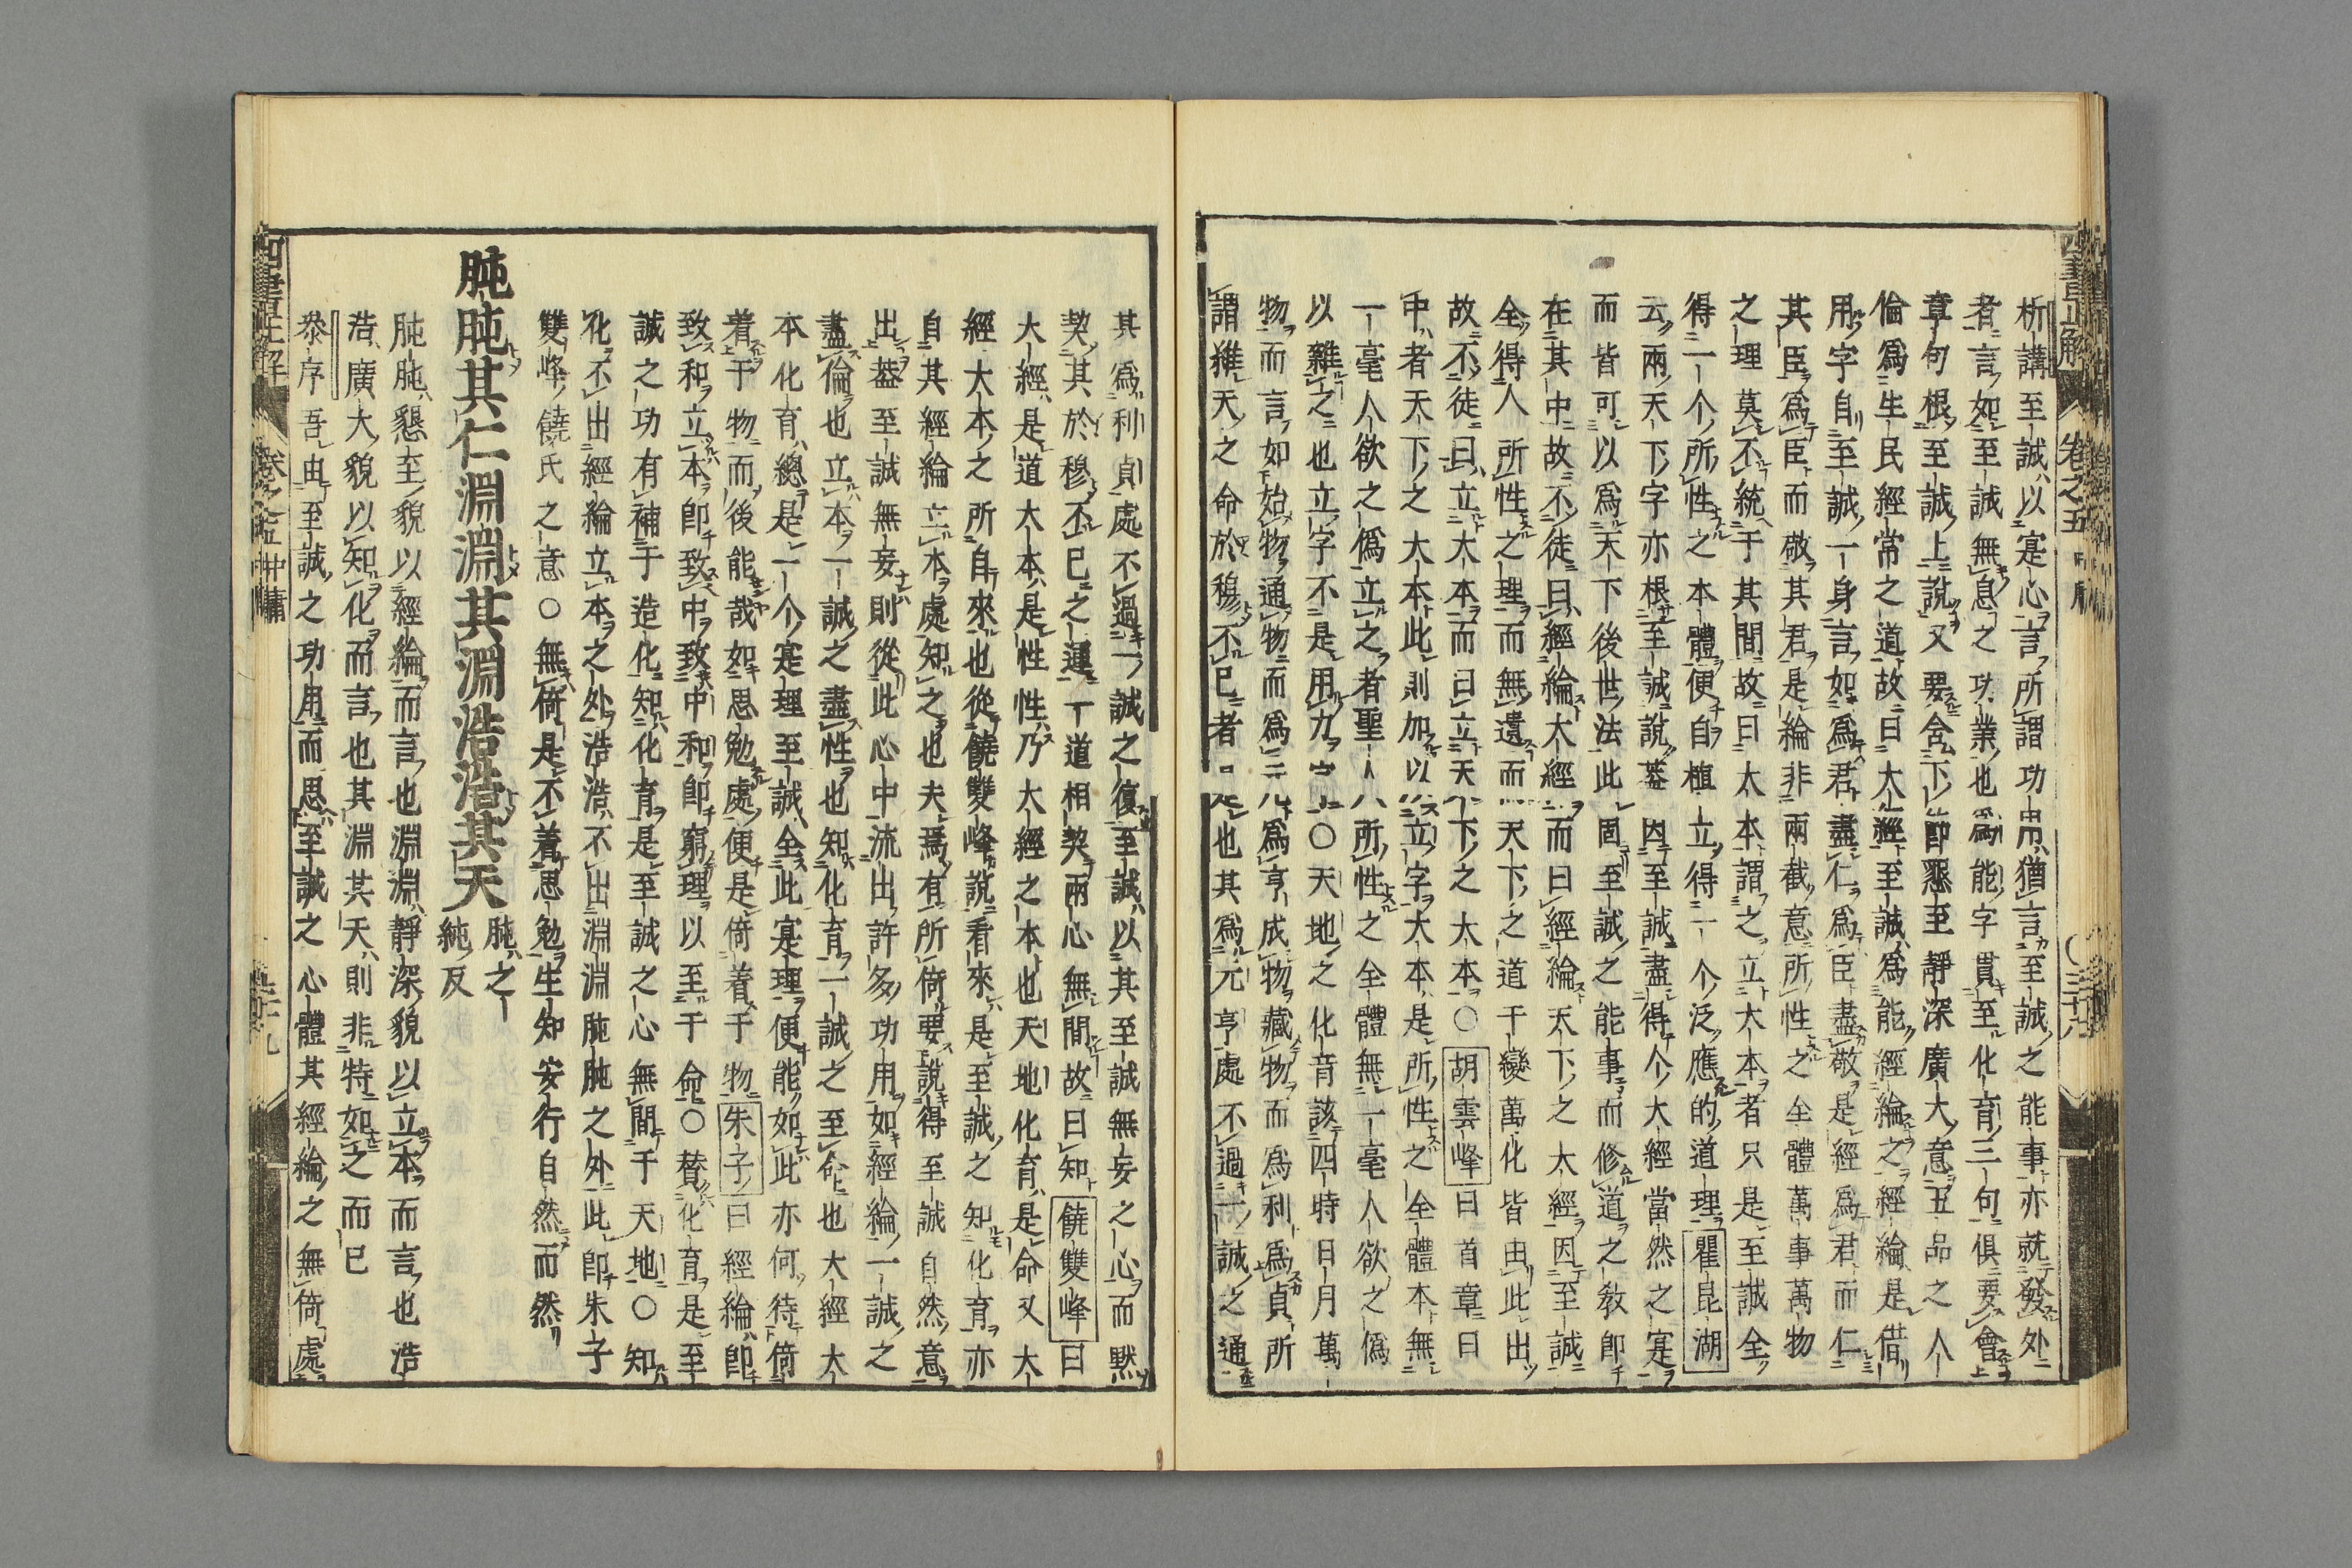 析講至誠以寔心言所謂功用猶言至誠之能事亦就發外
者言如至誠無息之功業也爲能字貫至化育三句俱要會
章句根至誠上說又要含下節懇至靜深廣大意五品之人
倫爲生民經常之道故曰大經至誠爲能經綸之經綸是借
用字自至誠一身言如爲君盡仁爲臣盡敬是經爲君而仁
其臣爲臣而敬其君是綸非兩截意所性之全體萬事萬物
之理莫不統于其間故曰大本謂之立大本者只是至誠全
得一个所性之本體便自植立得一个泛應的道理瞿昆湖
云兩天下字亦根至誠說葢因至誠盡得个大經當然之寔
而皆可以爲天下後世法此固至誠之能事而修道之敎卽
在其中故不徒曰經綸大經而曰經綸天下之大經因至誠
全得人所性之理而無遺而天下之道千變萬化皆由此出
故不徒曰立大本而曰立天下之大本〇胡雲峰曰首章曰
中者天下之大本此則加以立字大本是所性之全體本無
一毫人欲之僞立之者聖人所性之全體無一毫人欲之僞
以雜之也立字不是用力字〇天地之化育該四時日月萬
物而言如始物通物而爲元爲亨成物藏物而爲利爲貞所
謂維天之命於穆不已者是也其爲元亨處不過一誠之通
四書正解 卷之五 中庸 三十八
其爲利貞處不過一誠之復至誠以其至誠無妄之心而默
契其於穆不已之運一道相契兩心無間故曰知饒雙峰曰
大經是道大本是性性乃大經之本也天地化育是命又大
經大本之所自來也從饒雙峰說看來是至誠之知化育亦
自其經綸立本處知之也夫焉有所倚要說得至誠自然意
出葢至誠無妄則從此心中流出許多功用如經綸一誠之
盡倫也立本一誠之盡性也知化育一誠之至命也大經大
本化育總是一个寔理至誠全此寔理便能如此亦何待倚
着于物而後能哉如思勉處便是倚着于物朱子曰經綸卽
致和立本卽致中致中和卽窮理以至于命〇替化育是至
誠之功有補于造化知化育是至誠之心無間于天地〇知
化不出經綸立本之外浩浩不出淵淵肫肫之外此卽朱子
雙峰饒氏之意〇無倚是不着思勉生知安行自然而然
肫肫其仁淵淵其淵浩浩其天肫之純反
肫肫懇至貌以經綸而言也淵淵靜深貌以立本而言也浩
浩廣大貌以知化而言也其淵其天則非特如之而已
叅序吾由至誠之功用而思至誠之心體其經綸之無倚處
四書正解 卷之五 中庸 三十九